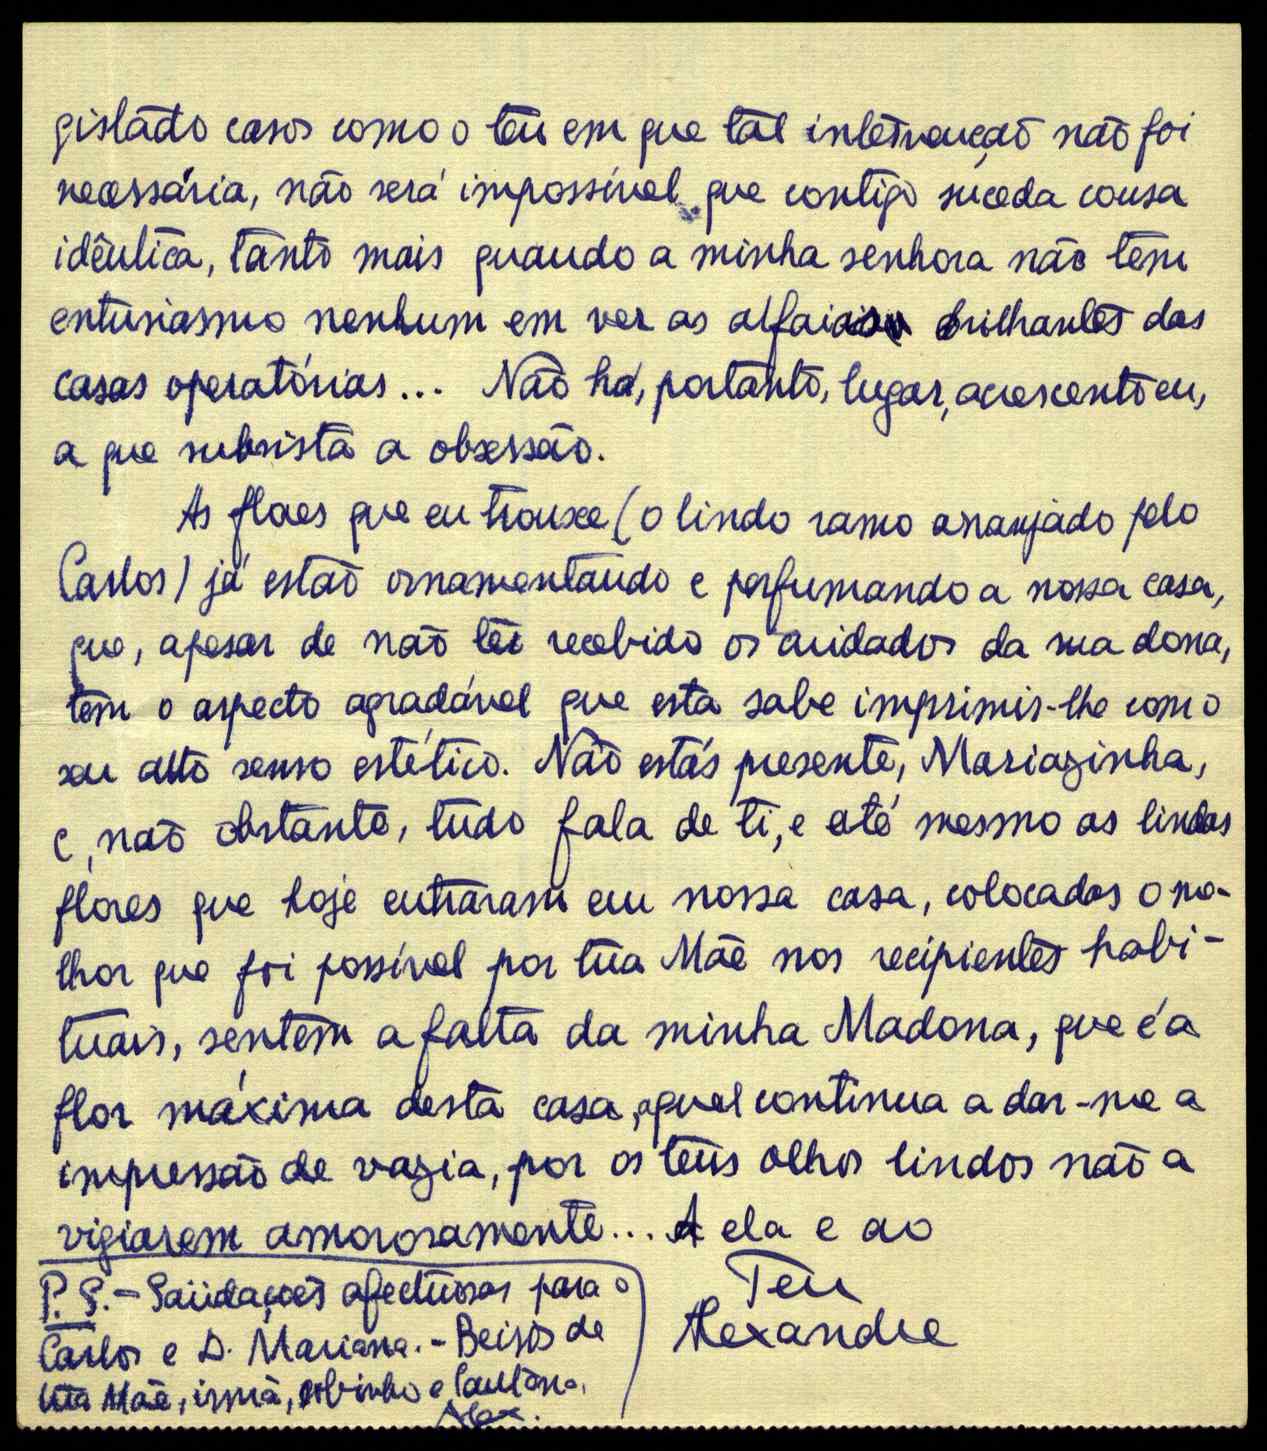 gistado casos como o teu em que tal intervenção não foi
necessária, não será impossível que contigo suceda cousa
idêntica, tanto mais quando a minha senhora não tem
entusiasmo nenhum em ver as alfaias brilhantes das
casas operatórias... Não há, portanto, lugar, acrescento eu,
a que subsista a obsessão.
As flores que eu trouxe (o lindo ramo arranjado pelo
Carlos) já estão ornamentando e perfumando a nossa casa,
que, apesar de não ter recebido os cuidados da sua dona,
tem o aspecto agradável que esta sabe imprimir-lhe com o
seu alto senso estético. Não estás presente, Mariazinha,
e, não obstante, tudo fala de ti, e até mesmo as lindas
flores que hoje entraram em nossa casa, colocadas o me-
lhor que foi possível por tua Mãe nos recipientes habi-
tuais, sentem a falta da minha Madona, que é a
flor máxima desta casa, a qual continua a dar-me a
impressão de vazia, por os teus olhos lindos não a
vigiarem amorosamente... A ela e ao
Teu
Alexandre
P. S. - Saüdações afectuosas para o
Carlos e D. Mariana. - Beijos de
tua Mãe, irmã, sobrinho e
Alex.